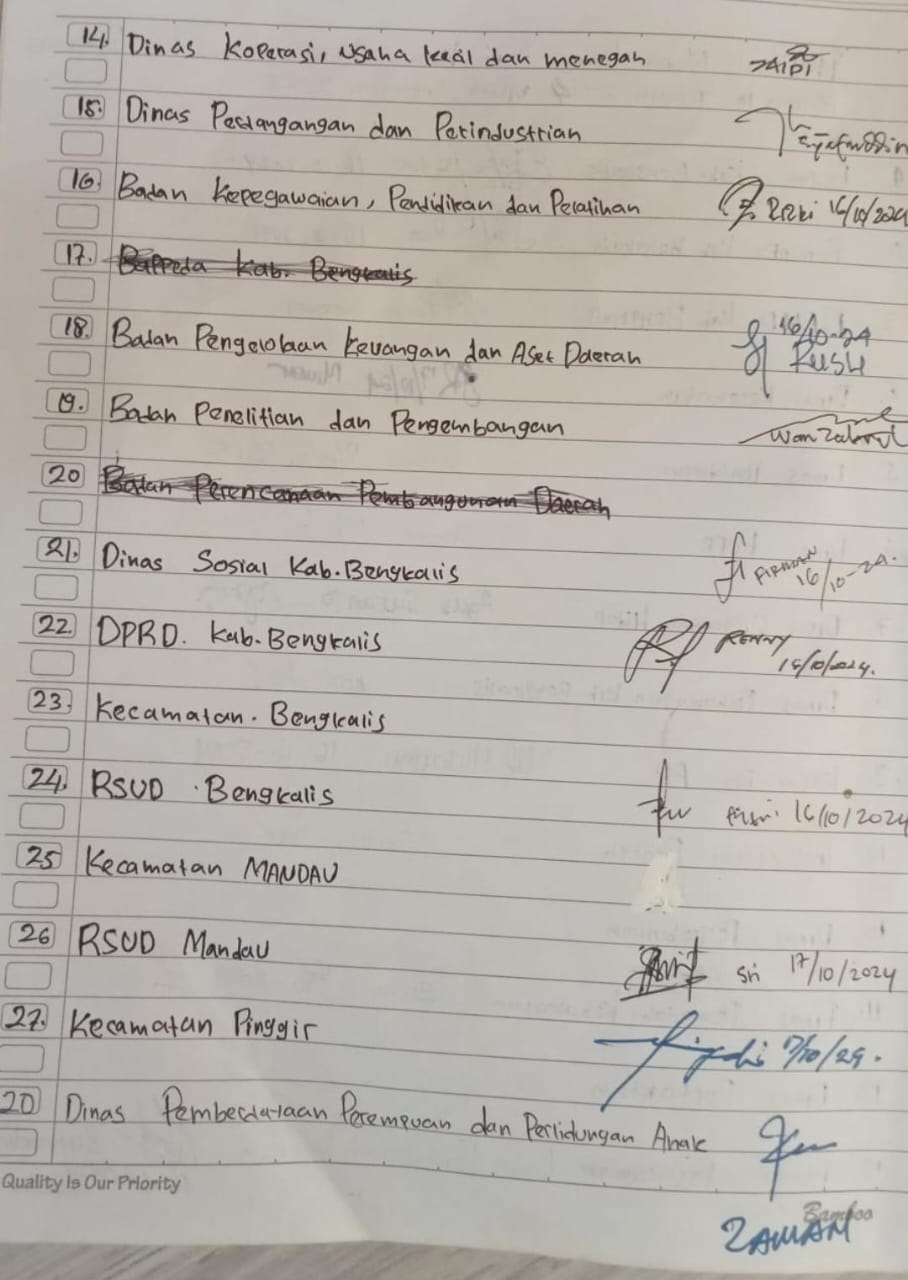 14. Dinas Koperasi, Usaha kecil dan menegah ZAIDI
15. Dinas Perdangangan dan Perindustrian
16. Badan Kepegawaian, Pendidikan dan Pelatihan Rizki 16/10/2024
17. Bappeda Kab. Bengkalis
18. Badan Pengelolaan Keuangan dan Aset Daerah 16/10-24
RUSLI
19. Badan Penelitian dan Pengembangan Wan Zainul
20 Badan Perencanaan Pembangunan Daerah
21. Dinas Sosial Kab. Bengkalis FIRMAN 16/10-24.
22. DPRD. Kab. Bengkalis RENNY
16/10/2024.
23. Kecamatan. Bengkalis
24. RSUD Bengkalis Fitri 16/10/2024
25 Kecamatan MANDAU
26 RSUD Mandau Sri 17/10/2024
27. Kecamatan Pinggir 17/10/24.
20 Dinas Pemberdayaan Perempuan dan Perlidungan Anak
ZAMAN
Quality Is Our Priority
Bamboo